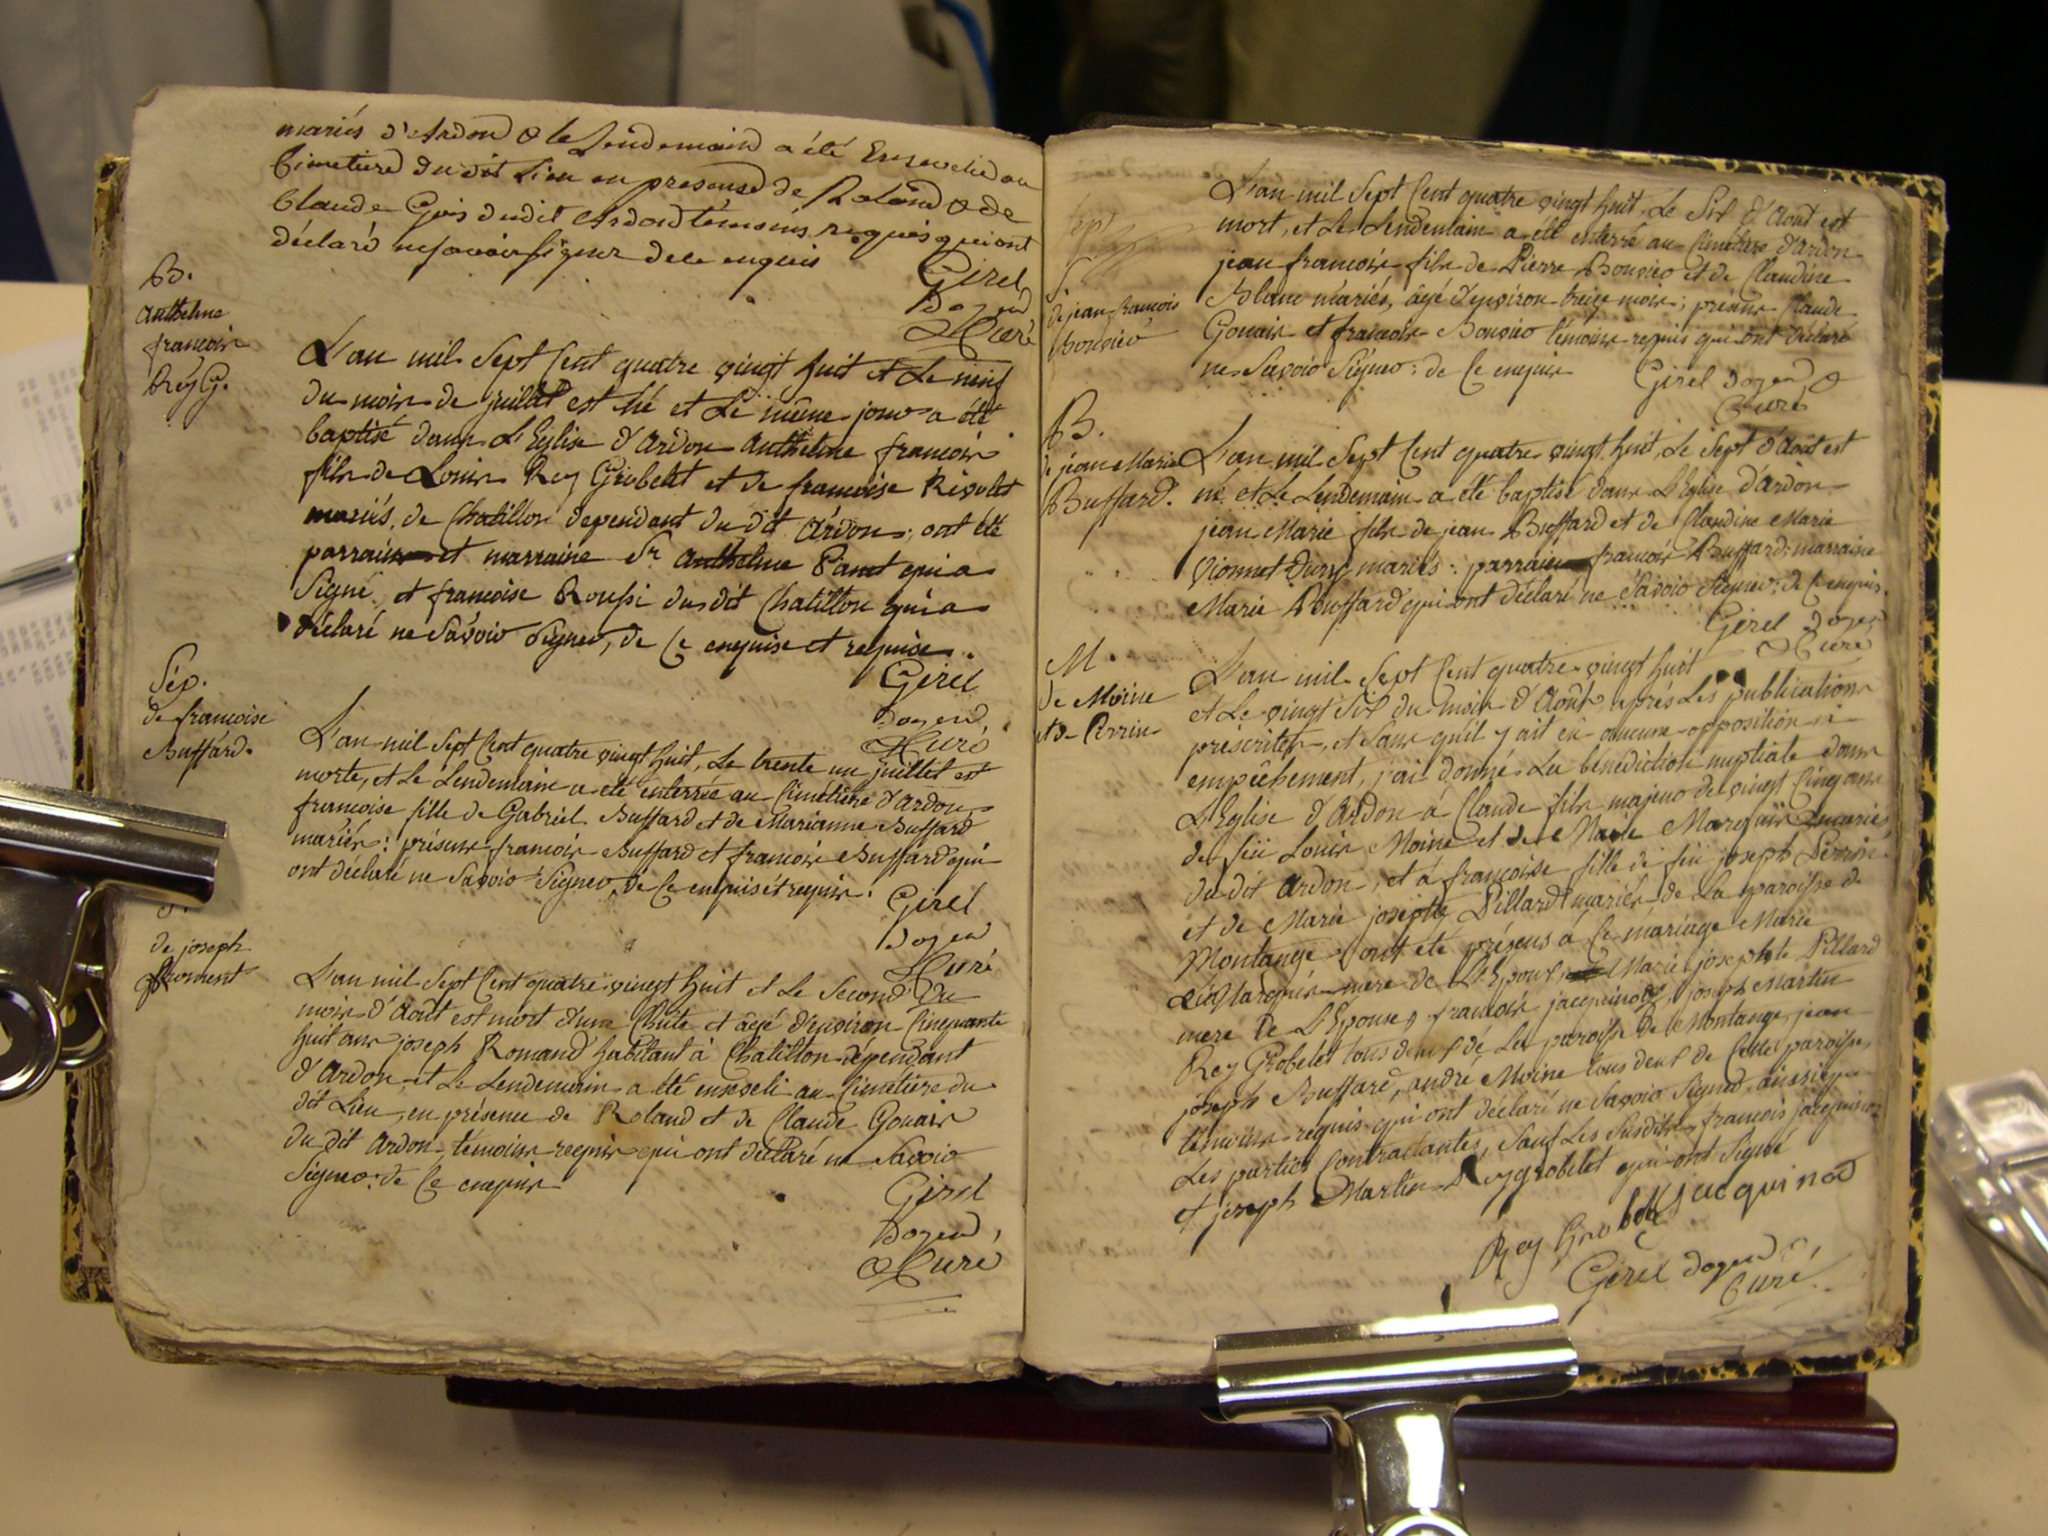 mariés d'Ardon & le Lendemain a été Ensevelie au
Cimetiere du dit Lieu en presence de Roland & de
Claude Gois dudit Ardon témoins requis qui ont
déclaré ne savoir signer de ce enquis
Girel
Doyen
& Curé
B.
Anthelme
francois
Rey G.
L'an mil Sept Cent quatre vingt huit et Le neuf
du mois de juillet est né et Le même jour a été
baptisé dans L'Eglise d'Ardon Anthelme francois
fils de Louis Rey Grobelet et de francoise
mariés, de Chatillon dependant du dit Ardon; ont été
parrain et marraine Sr. Anthelme qui a
Signé, et francoise du dit Chatillon qui a
déclaré ne Savoir Signer, de Ce enquise et requise.
Girel
Doyen
& Curé
Sép.
de francoise
Buffard.
L'an mil Sept Cent quatre vingt huit, Le trente un juillet est
morte, et Le Lendemain a été enterrée au Cimetière d'Ardon
francoise fille de Gabriel Buffard et de Marianne Buffard
mariés: présens francois Buffard et francois Buffard qui
ont déclaré ne Savoir Signer, de Ce enquis et requis.
Girel
Doyen
& Curé
S.
de joseph
L'an mil Sept Cent quatre vingt huit et Le Second du
mois d'Août est mort d'une Chûte et âgé d'environ Cinquante
huit ans joseph Romand habitant à Chatillon dépendant
d'Ardon, et Le Lendemain a été enseveli au Cimetière du
dit Lieu, en présence de Roland et de Claude Gouais
du dit Ardon, témoins requis qui ont déclaré ne Savoir
Signer: de Ce enquis
Girel
Doyen
& Curé
Sept
S.
de jean francois
Bouvier
L'an mil Sept Cent quatre vingt huit, Le Six d'Août est
mort, et Le Lendemain a été enterré au Cimetière d'Ardon
jean francois fils de Pierre Bouvier et de Claudine
Blanc mariés, âgé d'environ treize mois; présens Claude
Gouais et francois Bouvier témoins requis qui ont déclaré
ne Savoir Signer: de Ce enquis
Girel Doyen &
Curé
B.
de jean Marie
Buffard.
L'an mil Sept Cent quatre vingt huit, Le Sept d'Août est
né et Le Lendemain a été baptisé dans L'Eglise d'Ardon
jean Marie fils de jean Buffard et de Claudine Marie
mariés: parrain francois Buffard: marraine
Marie Buffard qui ont déclaré ne Savoir Signer: de Ce enquis.
Girel Doyen
& Curé
M.
de Moine
et de Perrin
L'an mil Sept Cent quatre vingt huit
et Le vingt Six du mois d'Août après Les publications
préscrites, et Sans qu'il y ait eû aucune opposition ni
empêchement, j'ai donné La bénédiction nuptiale dans
L'Eglise d'Ardon à Claude fils majeur de vingt Cinq ans
de feü Louis Moine et de Marie mariés
du dit Ardon, et à francoise fille de feü joseph Perrin
et de Marie josephte Pillard mariés de La paroisse de
Montange; ont été présens à Ce mariage Marie
mere de L'Epoux, Marie josephte Pillard
mere de L'Epouse, francois jacquinod, joseph Martin
Rey Grobelet tous deux de La paroisse de Montange, jean
joseph Buffard, andré Moine tous deux de Cette paroisse,
témoins requis qui ont déclaré ne Savoir Signer, aussi que
Les parties Contractantes, Sauf Les Susdits francois jacquinod
et joseph Martin Reygrobelet qui ont Signé
Rey Grobelet Jacquinod
Girel Doyen &
Curé